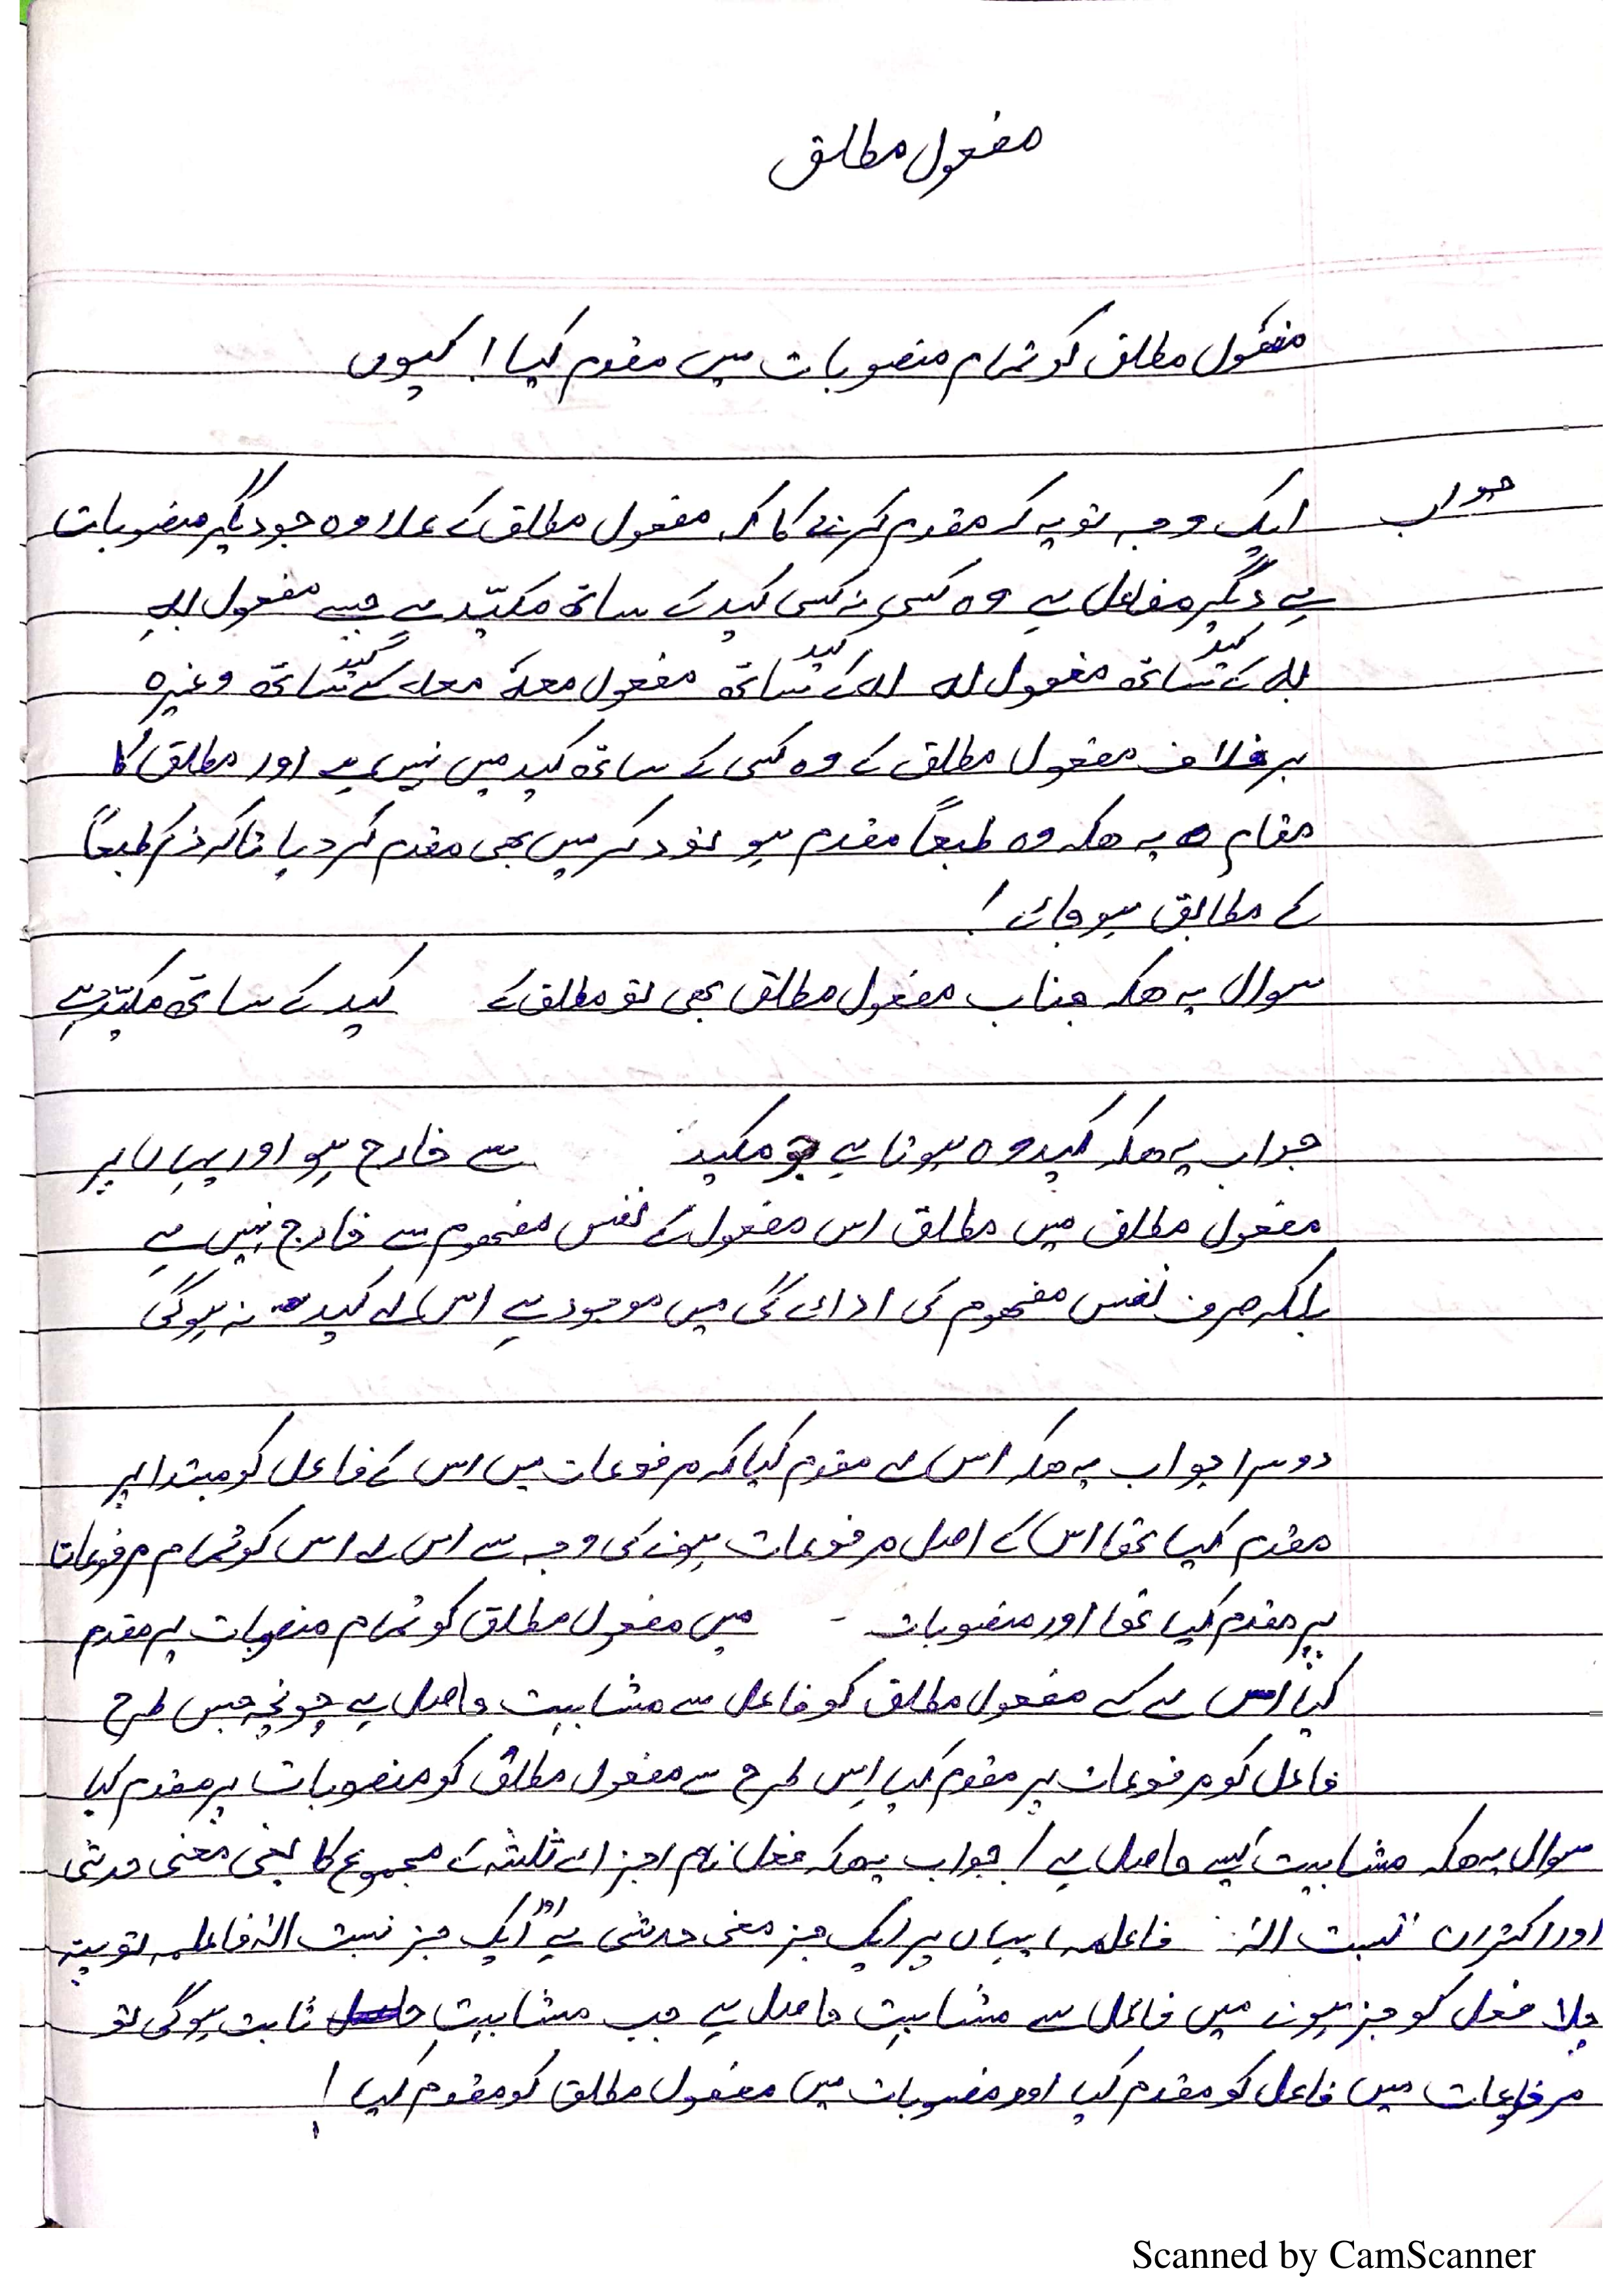 مفعول مطلق
مفعول مطلق کو تمام منصوبات میں مقدم کیا! کیوں
جواب ایک وجہ تو یہ کہ مقدم کرنے کا کہ مفعول مطلق کے علاوہ جو دیگر منصوبات
ہے دیگر مفاعل ہے وہ کسی نہ کسی کید کے ساتھ مکیّد ہے جیسے مفعول بہ
بہ کے کید کے ساتھ مفعول لہ لہ کے کید کے ساتھ مفعول معہ معہ کے کید کے ساتھ وغیرہ
برخلاف مفعول مطلق کے وہ کسی کے ساتھ کید میں نہیں ہے اور مطلق کا
مقام یہ ھکہ وہ طبعاً مقدم ہو تو ذکر میں بھی مقدم کر دیا تاکہ ذکر طبعاً
کے مطابق ہو جائے!
سوال یہ ھکہ جناب مفعول مطلق بھی تو مطلق کے کید کے ساتھ مکیّد ہے
جواب یہ ھکہ کید وہ ہوتا ہے جو مکید سے خارج ہو اور یہاں پر
مفعول مطلق میں مطلق اس مفعول کے نفس مفھوم سے خارج نہیں ہے
بلکہ صرف نفس مفھوم کی ادائے گی میں موجود ہے اس لے کید نہ ہوگی
دوسرا جواب یہ ھکہ اس لے مقدم کیا کہ مرفوعات میں اس کے فاعل کو مبتدا پر
مقدم کیا تھا اس کے اصل مرفوعات ہونے کی وجہ سے اس لے اس کو تمام مرفوعات
پر مقدم کیا تھا اور منصوبات میں مفعول مطلق کو تمام منصوبات پر مقدم
کیا اس لے کے مفعول مطلق کو فاعل سے مشابہت حاصل ہے چونچہ جس طرح
فاعل کو مرفوعات پر مقدم کیا اِس طرح سے مفعول مطلق کو منصوبات پر مقدم کیا
سوال یہ ھکہ مشابہت کیسے حاصل ہے! جواب یہ ھکہ فعل نام اجزائے ثلثہ کے مجموع کا یعنی معنی حدثی
اور اکتران نسبت الیٰ فاعلمہ یہاں پر ایک جز معنی حدثی ہے اور ایک جز نسبت الیٰ فاعلمہ تو پتہ
چلا فعل کو جز ہونے میں فاعل سے مشابہت حاصل ہے جب مشابہت ثابت ہوگی تو
مرفوعات میں فاعل کو مقدم کیا اور منصوبات میں مفعول مطلق کو مقدم کیا!
Scanned by CamScanner